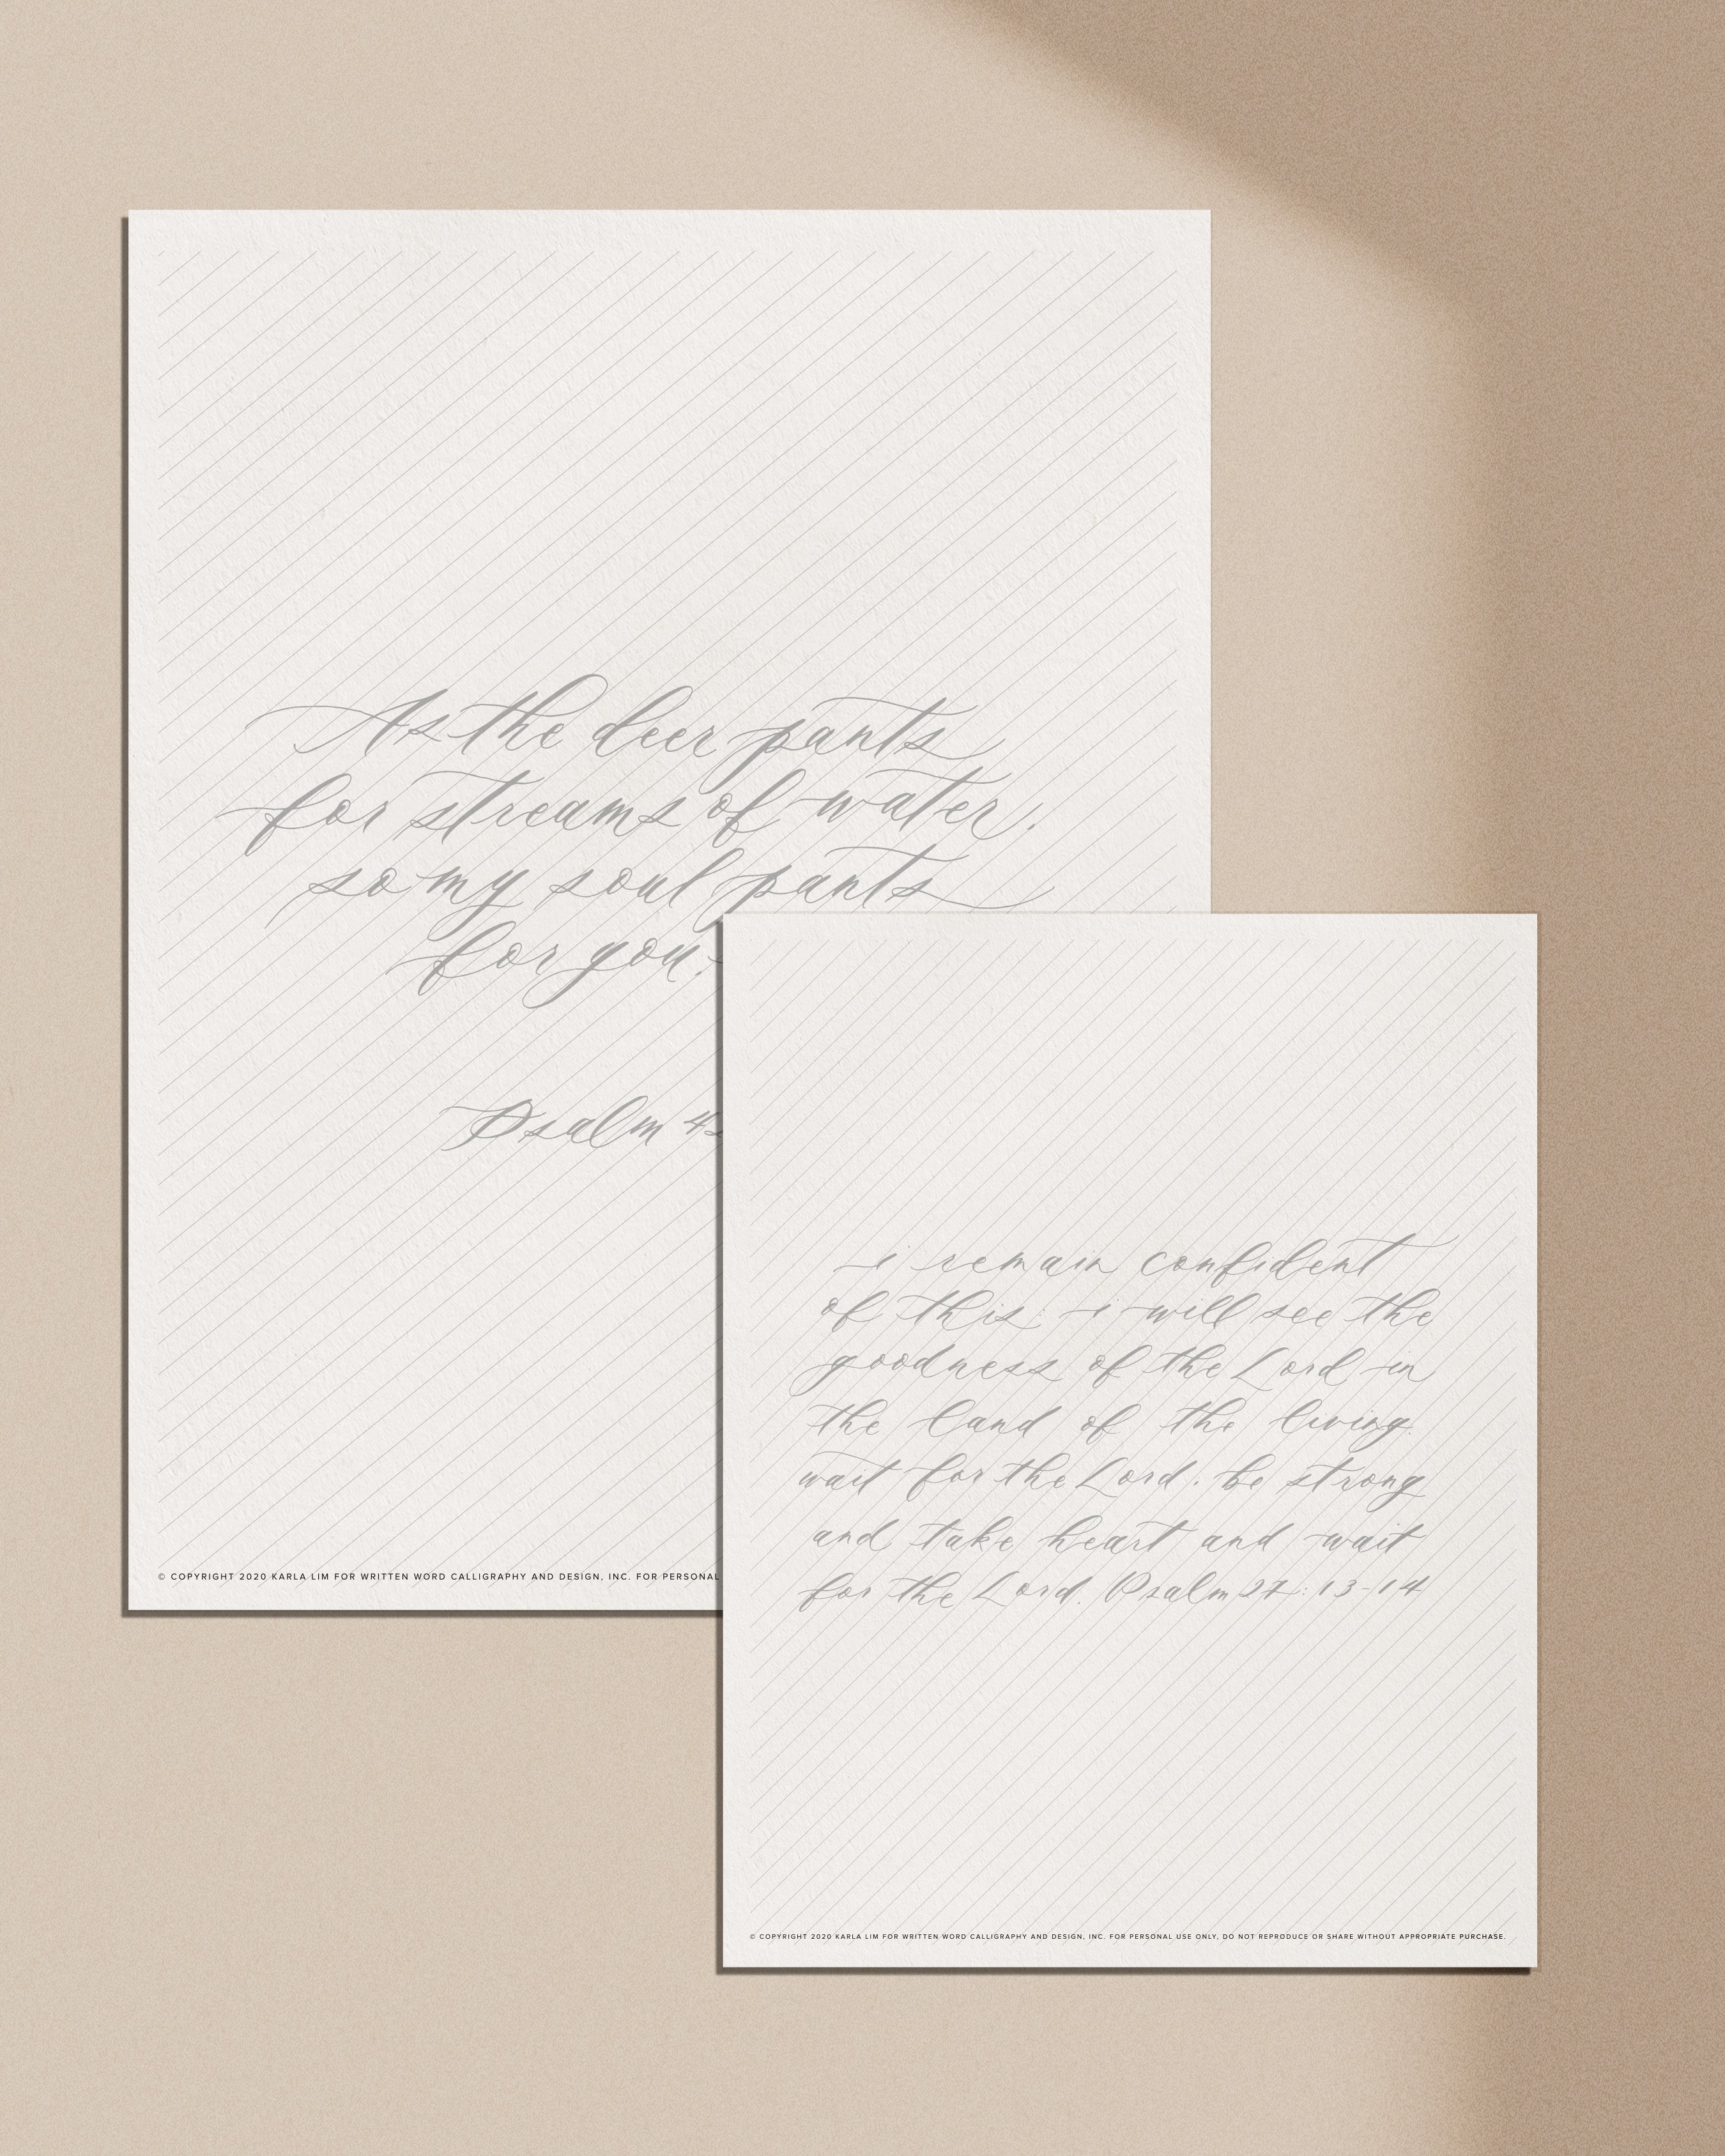 As the deer pants
for streams of water,
so my soul pants
for you.
Psalm 4
© COPYRIGHT 2020 KARLA LIM FOR WRITTEN WORD CALLIGRAPHY AND DESIGN, INC. FOR PERSONAL
i remain confident
of this: i will see the
goodness of the Lord in
the land of the living.
wait for the Lord. be strong
and take heart and wait
for the Lord. Psalm 27:13-14
© COPYRIGHT 2020 KARLA LIM FOR WRITTEN WORD CALLIGRAPHY AND DESIGN, INC. FOR PERSONAL USE ONLY, DO NOT REPRODUCE OR SHARE WITHOUT APPROPRIATE PURCHASE.